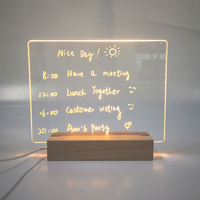 Nice Day!
8:00 Have a meeting
12:00 Lunch Together
16:00 Customer visting
20:00 Ann's Party